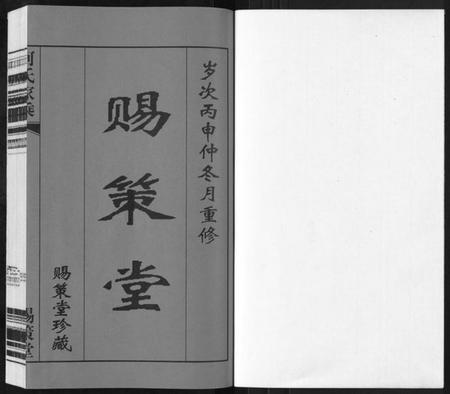 岁次丙申仲冬月重修
赐策堂
赐策堂珍藏
何氏家族
赐策堂